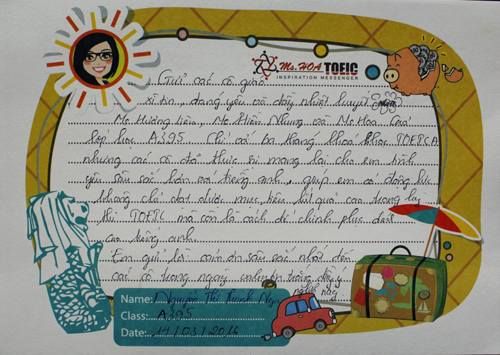 Ms. HOA TOEIC
INSPIRATION MESSENGER
Gửi các cô giáo
xì tin, đáng yêu và đầy nhiệt huyết
Ms Hương Liên, Ms Hiền Nhung và Ms Hoa của
lớp học A395. Chỉ có ba tháng khoá học TOEIC A
nhưng các cô đã thực sự mang lại cho em tình
yêu sâu sắc hơn với tiếng anh, giúp em có động lực
không chỉ đạt được mục tiêu kết quả cao trong kỳ
thi TOEIC mà còn là cách để chinh phục
cao tiếng anh.
Em gửi lời cảm ơn sâu sắc nhất đến
các cô trong ngày
nghĩa này
Name: Nguyễn Thị
Class: A395
Date: 14/03/2016